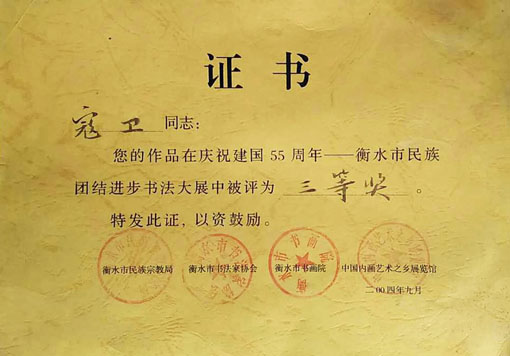 证书
寇卫 同志：
您的作品在庆祝建国 55 周年——衡水市民族
团结进步书法大展中被评为 三等奖 。
特发此证，以资鼓励。
衡水市民族宗教局 衡水市书法家协会 衡水市书画院 中国内画艺术之乡展览馆
二00四年九月